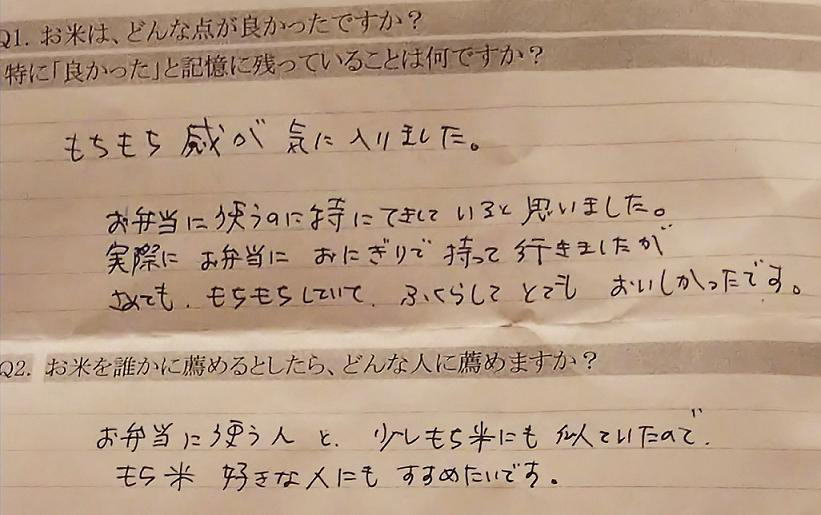 Q1. お米は、どんな点が良かったですか？
特に「良かった」と記憶に残っていることは何ですか？
もちもち 感が 気に入りました。
お弁当に使うのに特にてきして いると 思いました。
実際に お弁当に おにぎりで 持って 行きましたが
さめても、もちもちしていて、ふくらして とても おいしかったです。
Q2. お米を誰かに薦めるとしたら、どんな人に薦めますか？
お弁当に使う人 と、少しもち米にも 似ていたので、
もち米 好きな人にも すすめたいです。